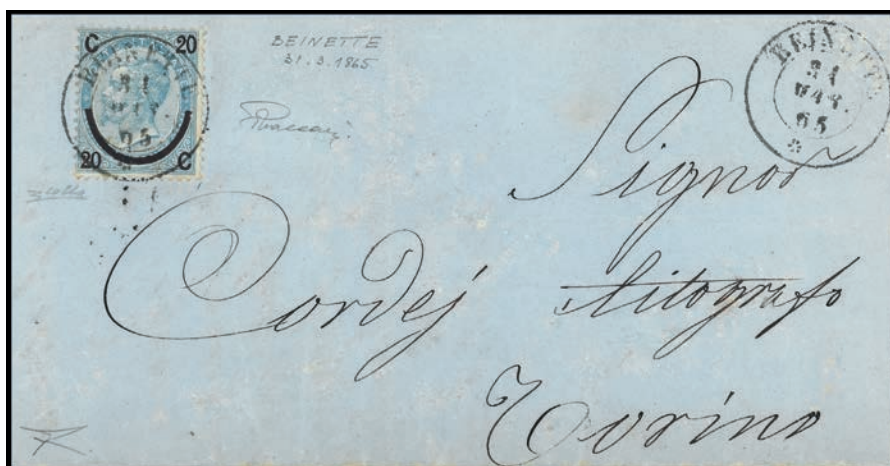 C 20
20 C
BEINETTE
31 MAR. 65
BEINETTE
31.3.1865
BEINETTE
31
MAR.
65
Signor
Cordej Litografo
Torino